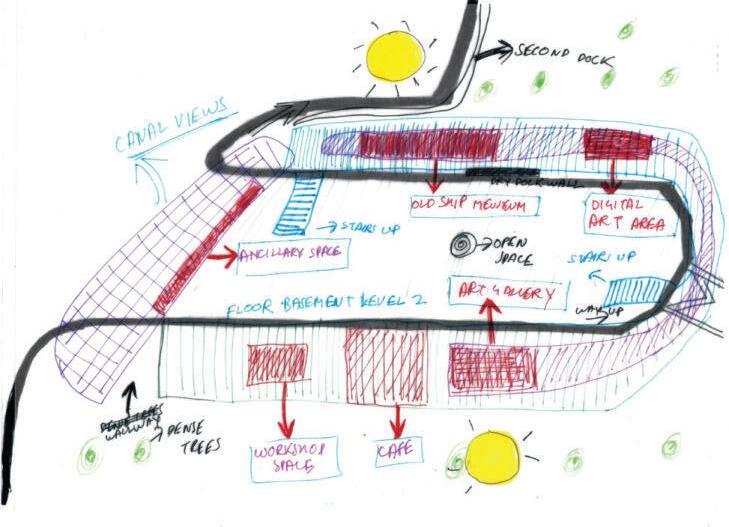 SECOND DOCK
CANAL VIEWS
DRY DOCK WALL
OLD SHIP MEWEUM
DIGITAL
ART AREA
STAIRS UP
OPEN
SPACE
ANCILLARY SPACE
STAIRS UP
ART GALLERY
FLOOR BASEMENT LEVEL 2
DENSE TREES
WALKWAY
DENSE
TREES
WORKSHOP
SPACE
CAFE